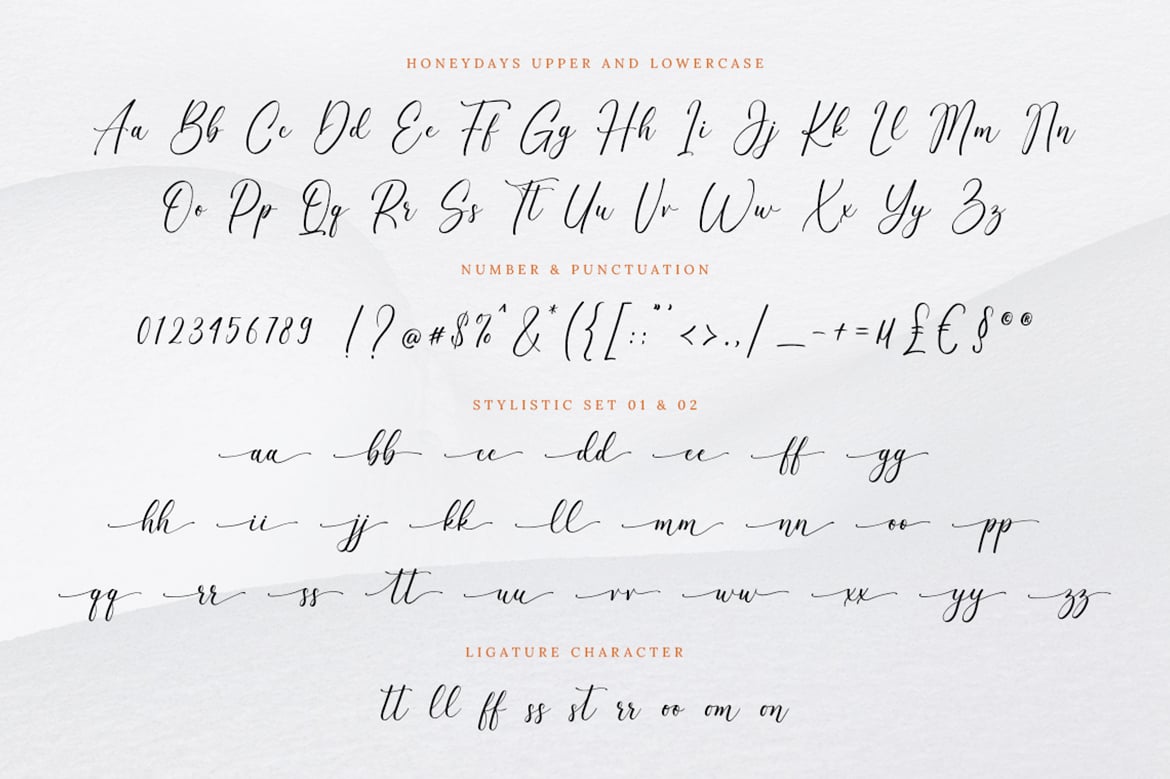 HONEYDAYS UPPER AND LOWERCASE
Aa Bb Cc Dd Ee Ff Gg Hh Ii Jj Kk Ll Mm Nn
Oo Pp Qq Rr Ss Tt Uu Vv Ww Xx Yy Zz
NUMBER & PUNCTUATION
0123456789 !?@#$%^&*({[::"'<>.,/_-+=µ£€§©®
STYLISTIC SET 01 & 02
aa bb cc dd ee ff gg
hh ii jj kk ll mm nn oo pp
qq rr ss tt uu vv ww xx yy zz
LIGATURE CHARACTER
tt ll ff ss st rr oo om on